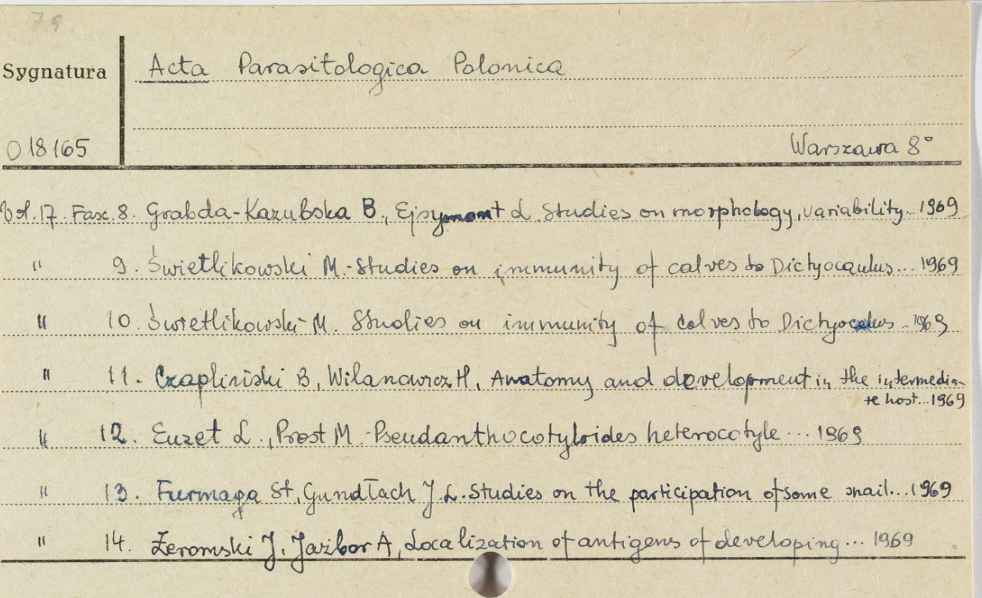 79
Sygnatura Acta Parasitologica Polonica
O 18165 Warszawa 8°
Vol. 17. Fasc. 8. Grabda-Kazubska B., Ejsymont L. Studies on morphology, variability... 1969
" 9. Świetlikowski M. - Studies on immunity of calves to Dictyocaulus... 1969
" 10. Świetlikowski M. Studies on immunity of calves to Dictyocaulus... 1969
" 11. Czapliński B, Wilanowicz H, Anatomy and development in the intermedia-
te host... 1969
" 12. Euzet L., Prost M - Pseudanthocotyloides heterocotyle... 1969
" 13. Furmaga St, Gundłach J. L. Studies on the participation of some snail... 1969
" 14. Żeromski J. Jazbor A, Localization of antigens of developing... 1969